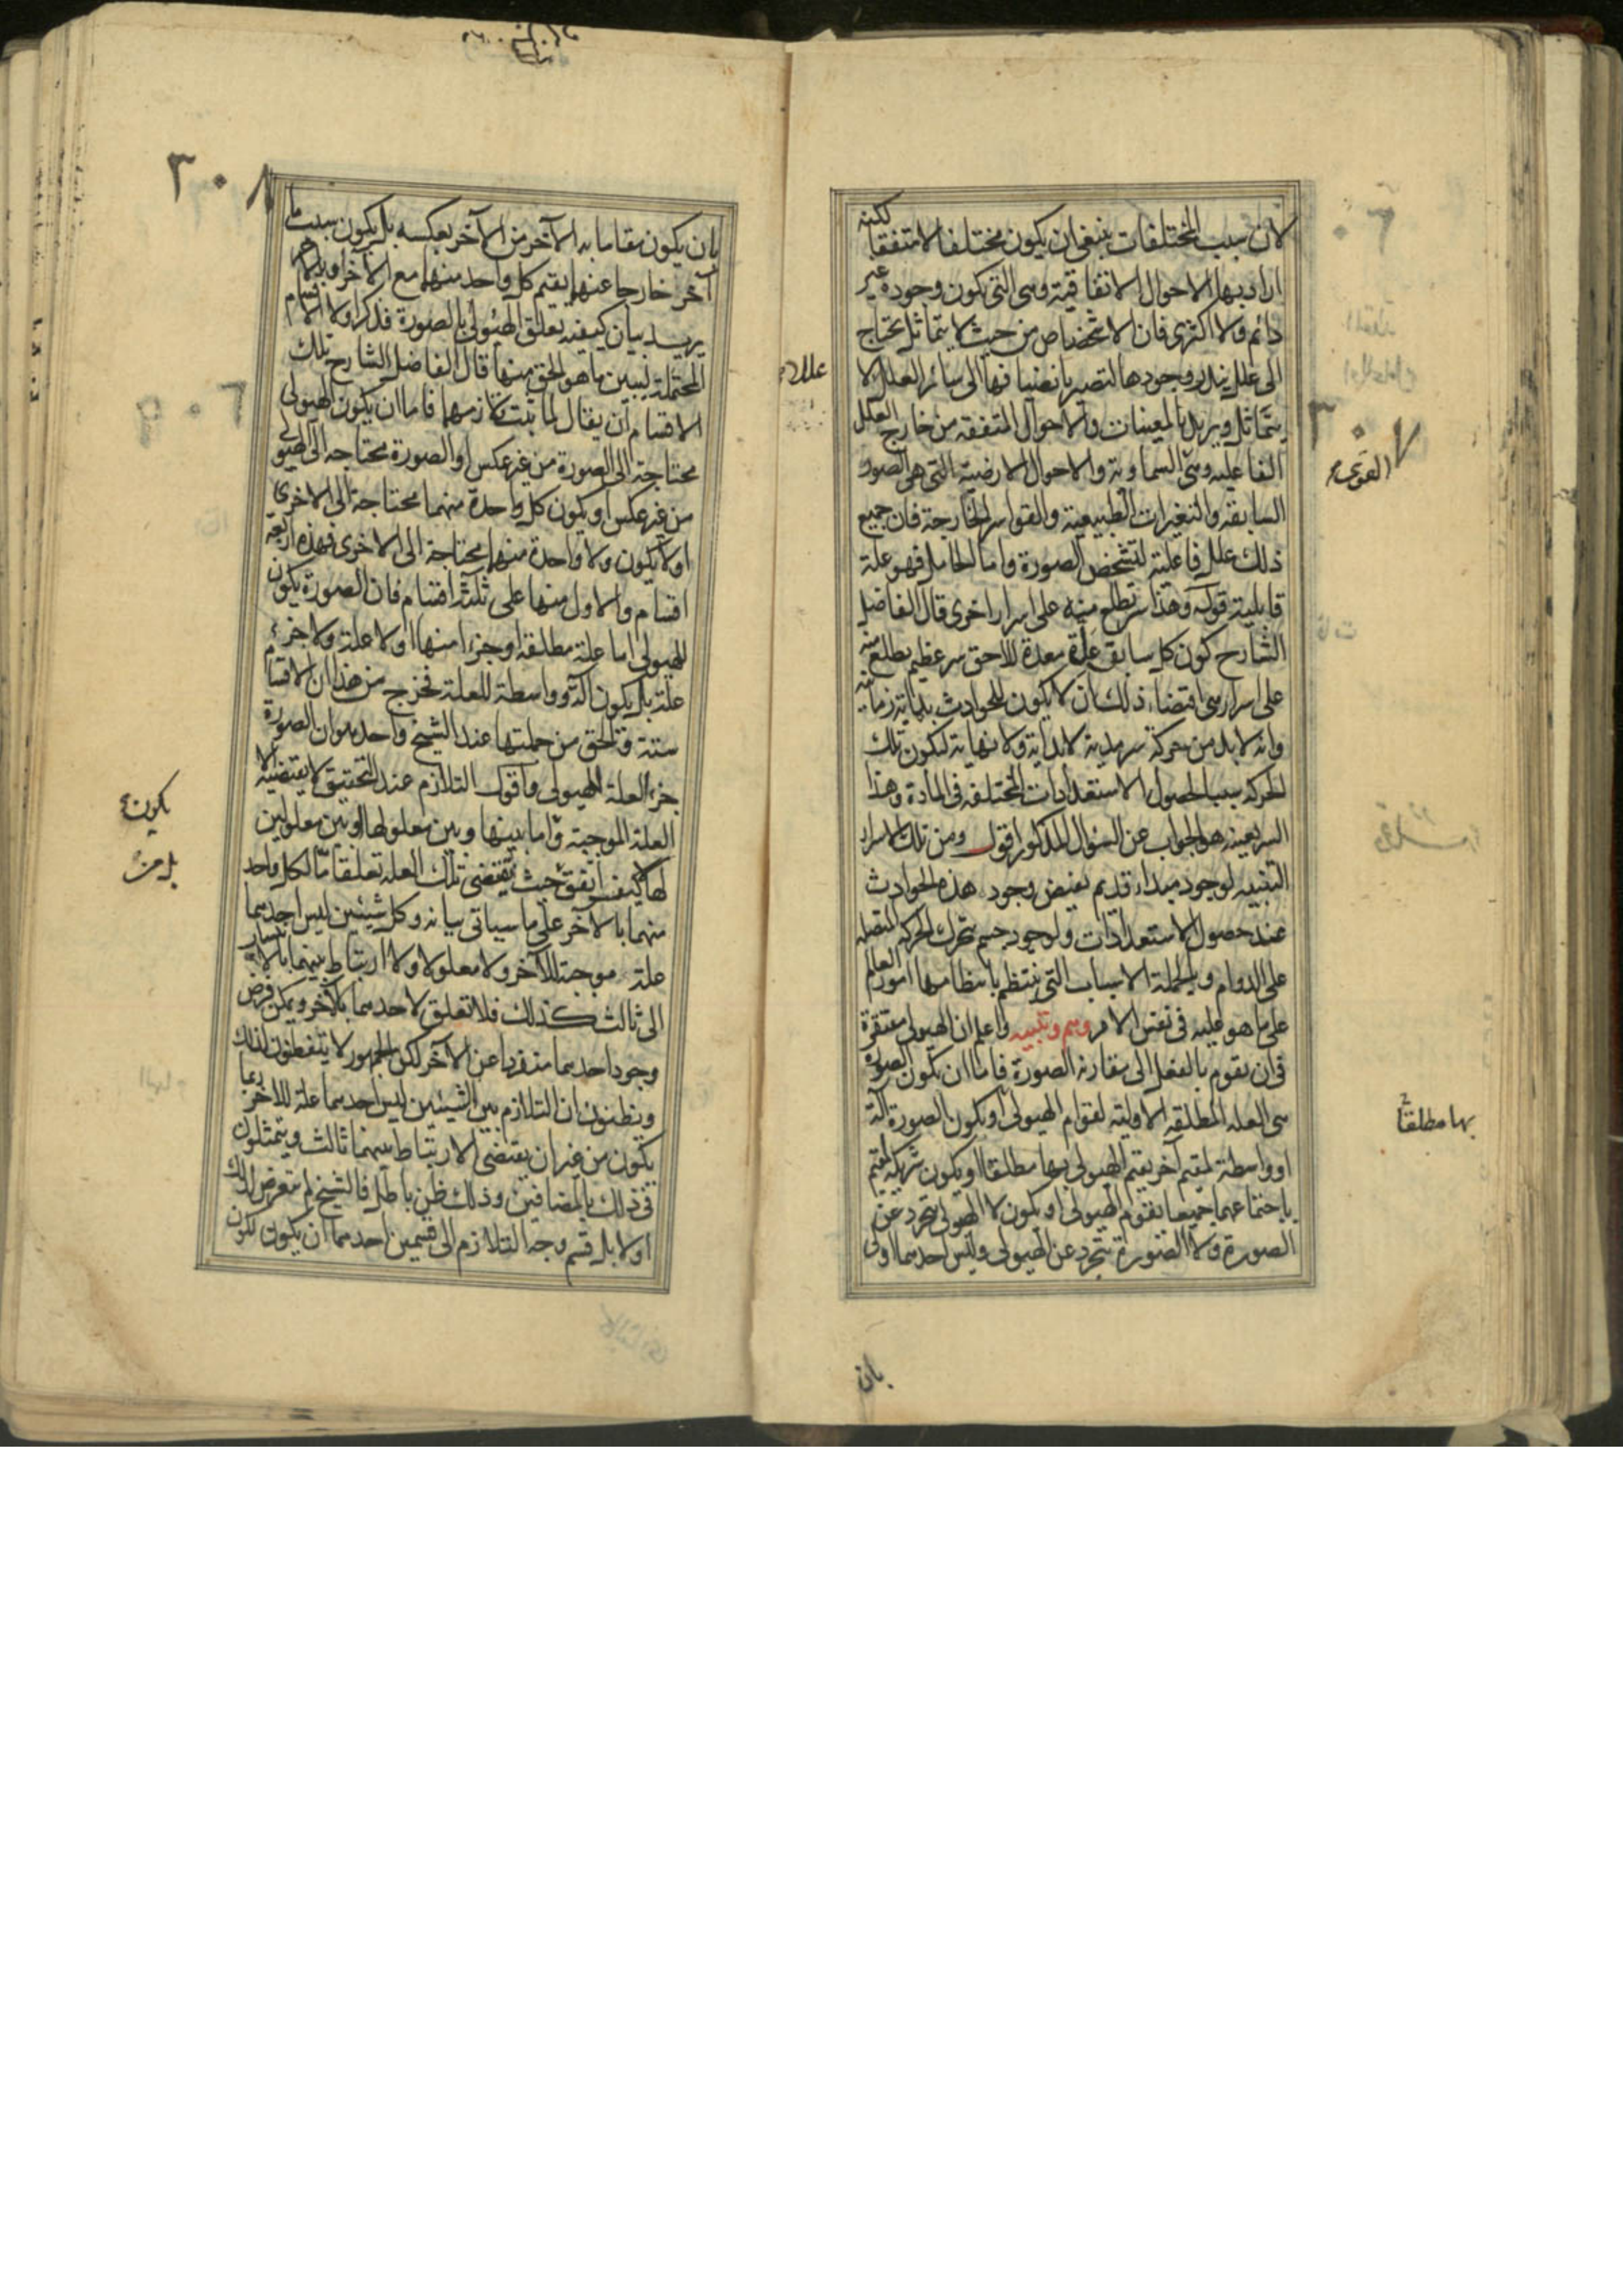 لان سبب المختلفات ينبغي ان يكون مختلفا لا متفقا لكنه
اراد بها الاحوال الاتفاقية وهى التى يكون وجوده غير
دائم ولا اكثرى فان الاشخاص من حيث لا يتماثل تحتاج
الى علل يندر وجودها لتصير بانضيافها الى سائر العلل لا
يتماثل ويريد بالمعينات والاحوال المتفقه من خارج العلل
الفاعلية وهى السماوية والاحوال الارضية التى هى الصور
السابقة والتغيرات الطبيعية والقواسر الخارجة فان جميع
ذلك علل فاعلية لتشخص الصورة واما الحامل فهو علة
قابلية قوله وهذا سر تطلع منه على اسرار اخرى قال الفاضل
الشارح كون كل سابق علة معدة للاحق سر عظيم يطلع منه
على اسرار هى اقتضاء ذلك ان لا يكون للحوادث بداية زمانية
وانه لا بد من حركة سرمدية لا بداية ولا نهاية لتكون تلك
الحركة سببا لحصول الاستعدادات المختلفه فى المادة وهذا
السر بعينه هو الجواب عن السؤال المذكور اقول ومن تلك الاسرار
التنبيه لوجود مبداء قديم يفيض وجود هذه الحوادث
عند حصول الاستعدادات ولوجود جسم يتحرك الحركة المتصله
على الدوام وبالجملة الاسباب التى ينتظم بانتظامها امور العالم
على ما هو عليه فى نفس الامر وهم وتنبيه واعلم ان الهيولى مفتقرة
فى ان تقوم بالفعل الى مقارنة الصورة فاما ان تكون الصورة
هى العلة المطلقه الاولية لقوام الهيولى او يكون الصورة آلة
او واسطة لمقيم آخر يقيم الهيولى بها مطلقا او يكون شريكة لمقيم
باجتماعهما جميعا تقوم الهيولى او يكون لا الهيولى تتجرد عن
الصورة ولا الصورة تتجرد عن الهيولى وليس احدهما اولى
علل
٣٠٧
القوى
بها مطلقا
بان
٣٠٨
بان يكون مقاما به الآخر من الآخر بعكسه بل يكون سبب ما
آخر خارجا عنهما يقيم كل واحد منهما مع الآخر او بالآخر
يريد بيان كيفية تعلق الهيولى بالصورة فذكر اولا الاقسام
المحتملة ليبين ما هو الحق منها قال الفاضل الشارح تلك
الاقسام ان يقال لما ثبت تلازمهما فاما ان يكون الهيولى
محتاجة الى الصورة من غير عكس او الصورة محتاجه الى الهيولى
من غير عكس او يكون كل واحدة منهما محتاجة الى الاخرى
او لا يكون ولا واحدة منهما محتاجة الى الاخرى فهذه اربعه
اقسام والاول منها على ثلثة اقسام فان الصورة يكون
للهيولى اما علة مطلقه او جزءا منها او لا علة ولا جزء
علة بل يكون آلة وواسطة للعلة فخرج من هذا ان الاقسام
ستة والحق من جملتها عند الشيخ واحد هو ان الصورة
جزء العلة للهيولى واقول التلازم عند التحقيق لا يقتضيه الا
العلة الموجبة واما بينها وبين معلولها او بين معلولين
لها كيف اتفق بل من حيث يقتضى تلك العله تعلقا ما لكل واحد
منهما بالآخر على ما سياتى بيانه وكل شيئين ليس احدهما
علة موجبة للآخر ولا معلولا ولا ارتباط بينهما بالانتساب
الى ثالث كذلك فلا تعلق لاحدهما بالآخر ويمكن فرض
وجود احدهما منفردا عن الآخر لكن الجمهور لا يتفطنون لذلك
ويظنون ان التلازم بين الشيئين ليس احدهما علة للآخر ربما
يكون من غير ان يقتضى الارتباط بينهما ثالث ويتمثلون
فى ذلك بالمضافين وذلك ظن باطل فالشيخ لم يتعرض لذلك
اولا بل قسم وجه التلازم الى قسمين احدهما ان يكون لكون
يكون
بل من